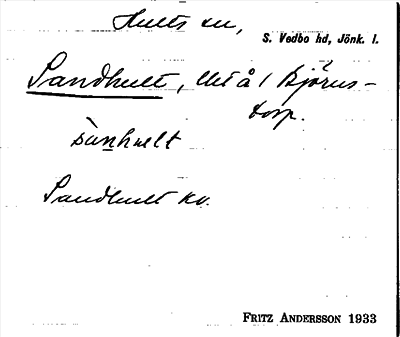 Hults sn,
S. Vedbo hd, Jönk. l.
Sandhult, utå / Björns-
torp.
sànhult
Sandhult kv.
FRITZ ANDERSSON 1933